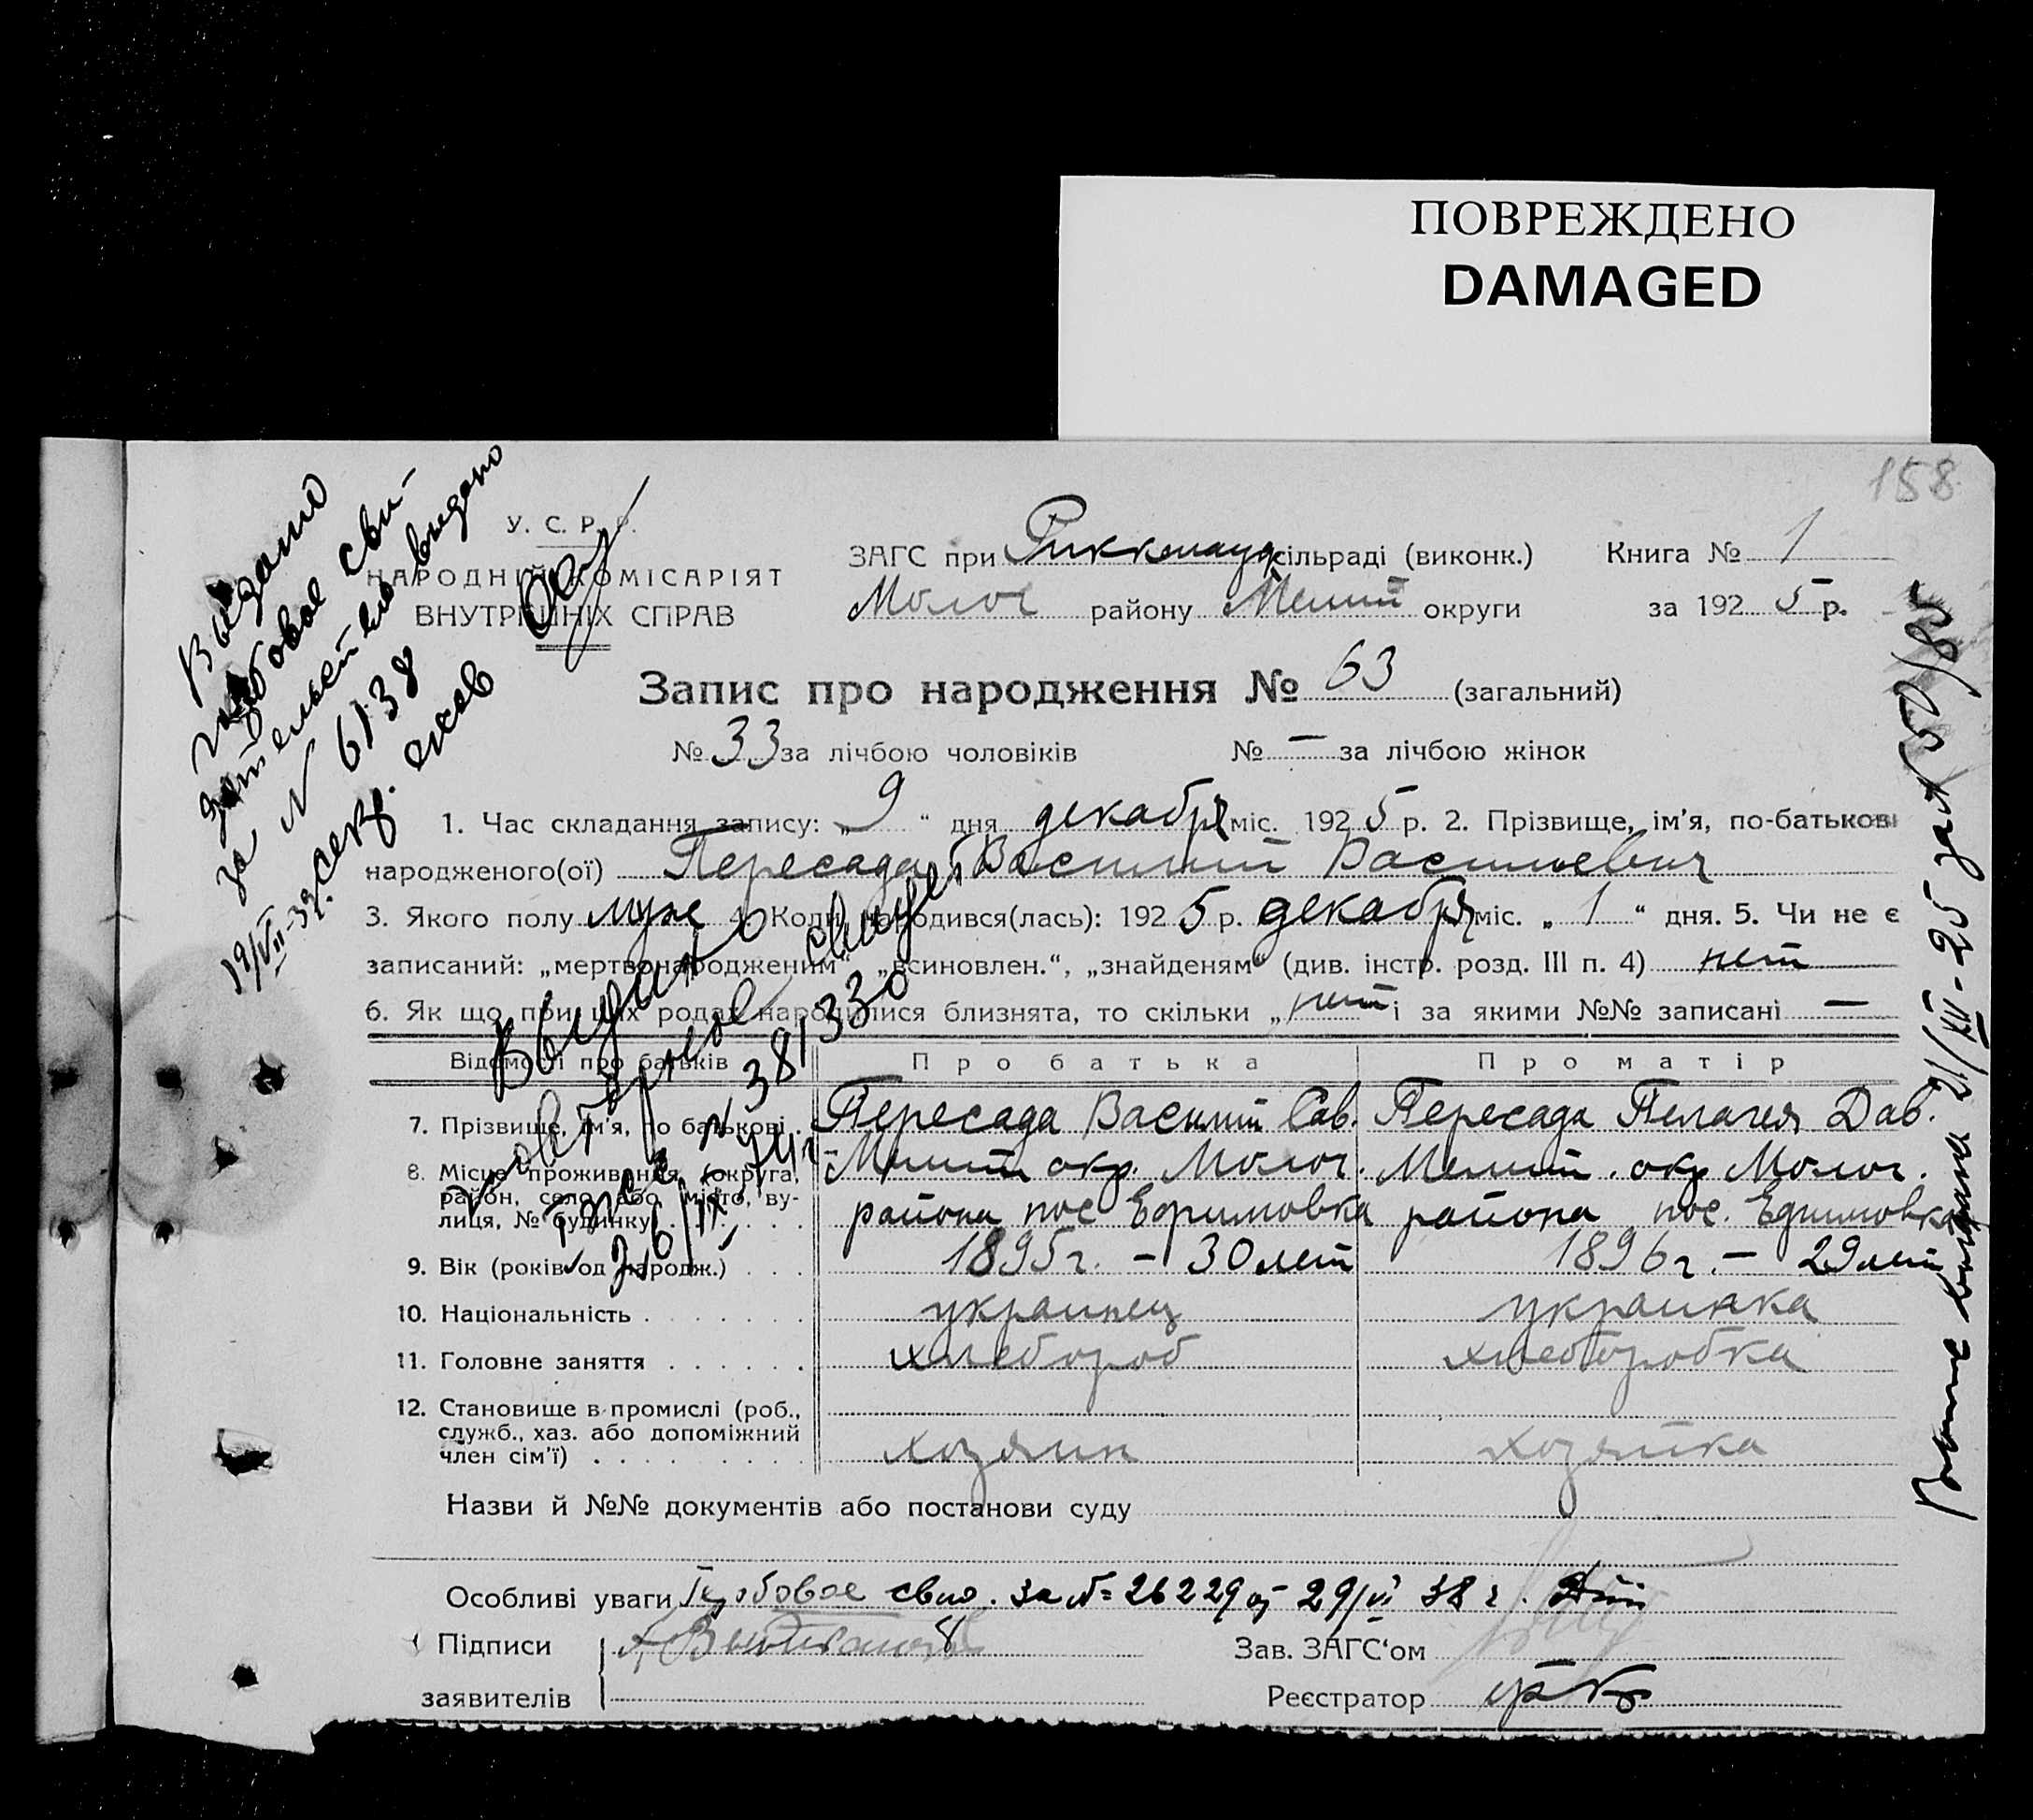 ПОВРЕЖДЕНО
DAMAGED
158
У. С. Р. Р.
НАРОДНІЙ КОМІСАРІЯТ
ВНУТРІШНІХ СПРАВ
ЗАГС при сільраді (виконк.) Книга № 1
Молоч району Мелит округи за 1925 р.
Запис про народження № 63 (загальний)
№ 33 за лічбою чоловіків № — за лічбою жінок
1. Час складання запису: „ 9 “ дня декабря міс. 1925 р. 2. Прізвище, ім'я, по-батькові
народженого(ої) Пересада Василий Васильевич
3. Якого полу муж 4. Коли народився(лась): 1925 р. декабря міс. „ 1 “ дня. 5. Чи не є
записаний: „мертвонародженим“ „всиновлен.“, „знайденям“ (див. інстр. розд. III п. 4) нет
6. Як що при цих родах народилися близнята, то скільки „ нет і за якими №№ записані —
Відомості про батьків Про батька Про матір
7. Прізвище, ім'я, по батькові . Пересада Василий Сав. Пересада Пелагея Дав.
8. Місце проживання (округа, Мелит окр. Молоч. Мелит. окр Молоч.
район, село або місто, ву- района пос Ефримовка района пос. Ефримовка
лиця, № будинку) . . . .
9. Вік (років од народж.) . . . 1895 г. – 30 лет 1896 г. – 29 лет
10. Національність . . . . . . . украинец украинка
11. Головне заняття . . . . . . хлебороб хлеборобка
12. Становище в промислі (роб.,
служб., хаз. або допоміжний
член сім'ї) . . . . . . . . . хозяин хозяйка
Назви й №№ документів або постанови суду
Особливі уваги свид. за № 26229 от 29/VI 38 г.
Підписи
заявителів
Зав. ЗАГС'ом
Реєстратор
Выдано
гербовое сви-
детельство выдано
за N 6138
19/VII-39г. секр.
Выдано свидет
повторное
N 381330
26/IX 
выдана 21/XII-25 за №